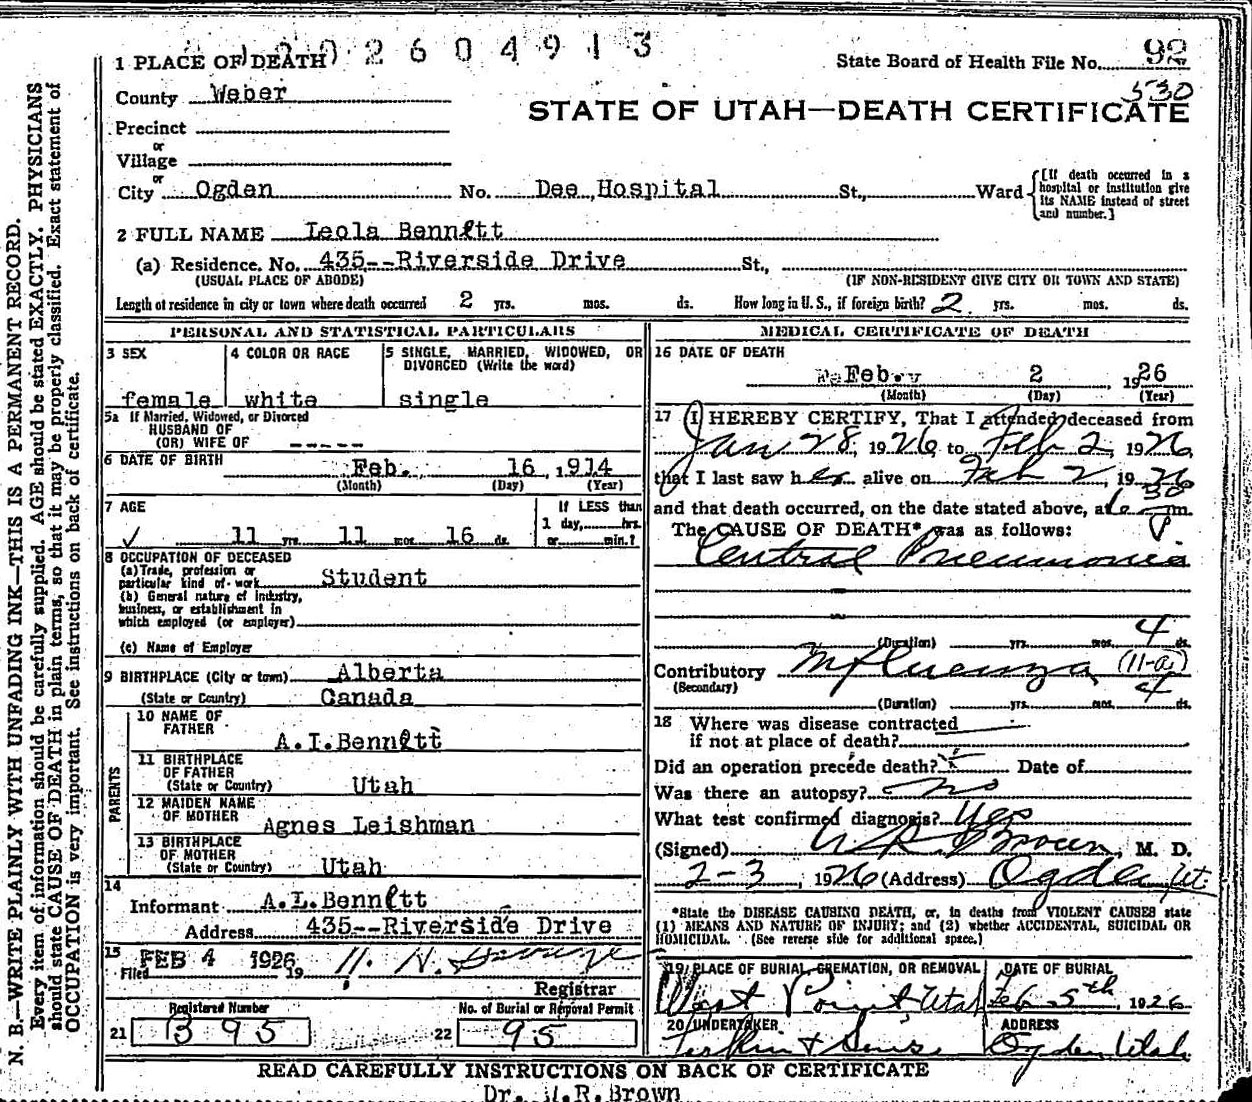 2604913
1 PLACE OF DEATH
State Board of Health File No. 92
530
County Weber
STATE OF UTAH—DEATH CERTIFICATE
Precinct
or
Village
or
City Ogden No. Dee Hospital St., Ward
{[If death occurred in a hospital or institution give its NAME instead of street and number.]
2 FULL NAME Leola Bennett
(a) Residence. No. 435--Riverside Drive St.,
(USUAL PLACE OF ABODE) (IF NON-RESIDENT GIVE CITY OR TOWN AND STATE)
Length of residence in city or town where death occurred 2 yrs. mos. ds. How long in U. S., if foreign birth? 2 yrs. mos. ds.
PERSONAL AND STATISTICAL PARTICULARS
3 SEX
female
4 COLOR OR RACE
white
5 SINGLE, MARRIED, WIDOWED, OR
DIVORCED (Write the word)
single
5a If Married, Widowed, or Divorced
HUSBAND OF
(OR) WIFE OF -----
6 DATE OF BIRTH
Feb. 16 ,1914
(Month) (Day) (Year)
7 AGE
11 yrs. 11 mos. 16 ds.
If LESS than
1 day,......hrs.
or......min.?
8 OCCUPATION OF DECEASED
(a) Trade, profession or
particular kind of work Student
(b) General nature of industry,
business, or establishment in
which employed (or employer)
(c) Name of Employer
9 BIRTHPLACE (City or town) Alberta
(State or Country) Canada
PARENTS
10 NAME OF
FATHER A.I.Bennett
11 BIRTHPLACE
OF FATHER
(State or Country) Utah
12 MAIDEN NAME
OF MOTHER Agnes Leishman
13 BIRTHPLACE
OF MOTHER
(State or Country) Utah
14
Informant A.L.Bennett
Address 435--Riverside Drive
15 FEB 4 1926
Filed 19
Registrar
Registered Number
21 B 95
No. of Burial or Removal Permit
22 95
MEDICAL CERTIFICATE OF DEATH
16 DATE OF DEATH
Feb. 2 , 1926
(Month) (Day) (Year)
17 I HEREBY CERTIFY, That I attended deceased from
Jan 28, 1926 to Feb 2, 1926,
that I last saw her alive on Feb 2, 1926
and that death occurred, on the date stated above, at 6 30 P m.
The CAUSE OF DEATH* was as follows:
Central Pneumonia
(Duration) yrs. mos. 4 ds.
Contributory Influenza (11-a)
(Secondary)
(Duration) yrs. mos. 4 ds.
18 Where was disease contracted
if not at place of death?
Did an operation precede death? Date of
Was there an autopsy? no
What test confirmed diagnosis? yes
(Signed) W R Brown, M. D.
2-3, 1926 (Address) Ogden Ut
*State the DISEASE CAUSING DEATH, or, in deaths from VIOLENT CAUSES state
(1) MEANS AND NATURE OF INJURY; and (2) whether ACCIDENTAL, SUICIDAL OR
HOMICIDAL. (See reverse side for additional space.)
19 PLACE OF BURIAL, CREMATION, OR REMOVAL
West Point, Utah
DATE OF BURIAL
Feb 5th, 1926
20 UNDERTAKER
Larkin & Sons
ADDRESS
Ogden Utah
READ CAREFULLY INSTRUCTIONS ON BACK OF CERTIFICATE
Dr. W.R.Brown
N. B.—WRITE PLAINLY WITH UNFADING INK—THIS IS A PERMANENT RECORD.
Every item of information should be carefully supplied. AGE should be stated EXACTLY. PHYSICIANS
should state CAUSE OF DEATH in plain terms, so that it may be properly classified. Exact statement of
OCCUPATION is very important. See instructions on back of certificate.